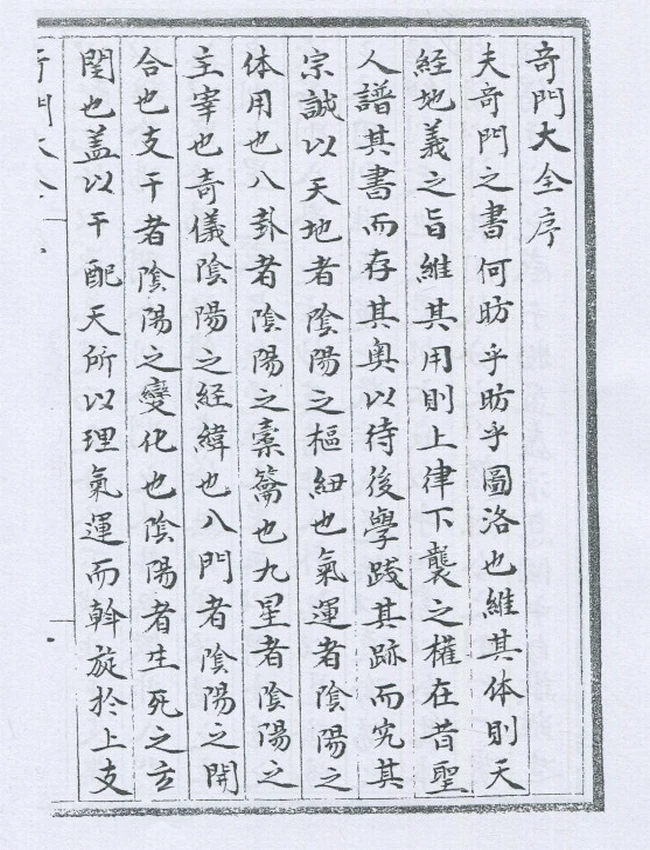 奇門大全序
夫奇門之書何昉乎昉乎圖洛也維其体則天
經地義之旨維其用則上律下襲之權在昔聖
人譜其書而存其奧以待後學踐其跡而究其
宗誠以天地者陰陽之樞紐也氣運者陰陽之
体用也八卦者陰陽之橐籥也九星者陰陽之
主宰也奇儀陰陽之経緯也八門者陰陽之開
合也支干者陰陽之變化也陰陽者生死之玄
閏也盖以干配天所以理氣運而斡旋於上支